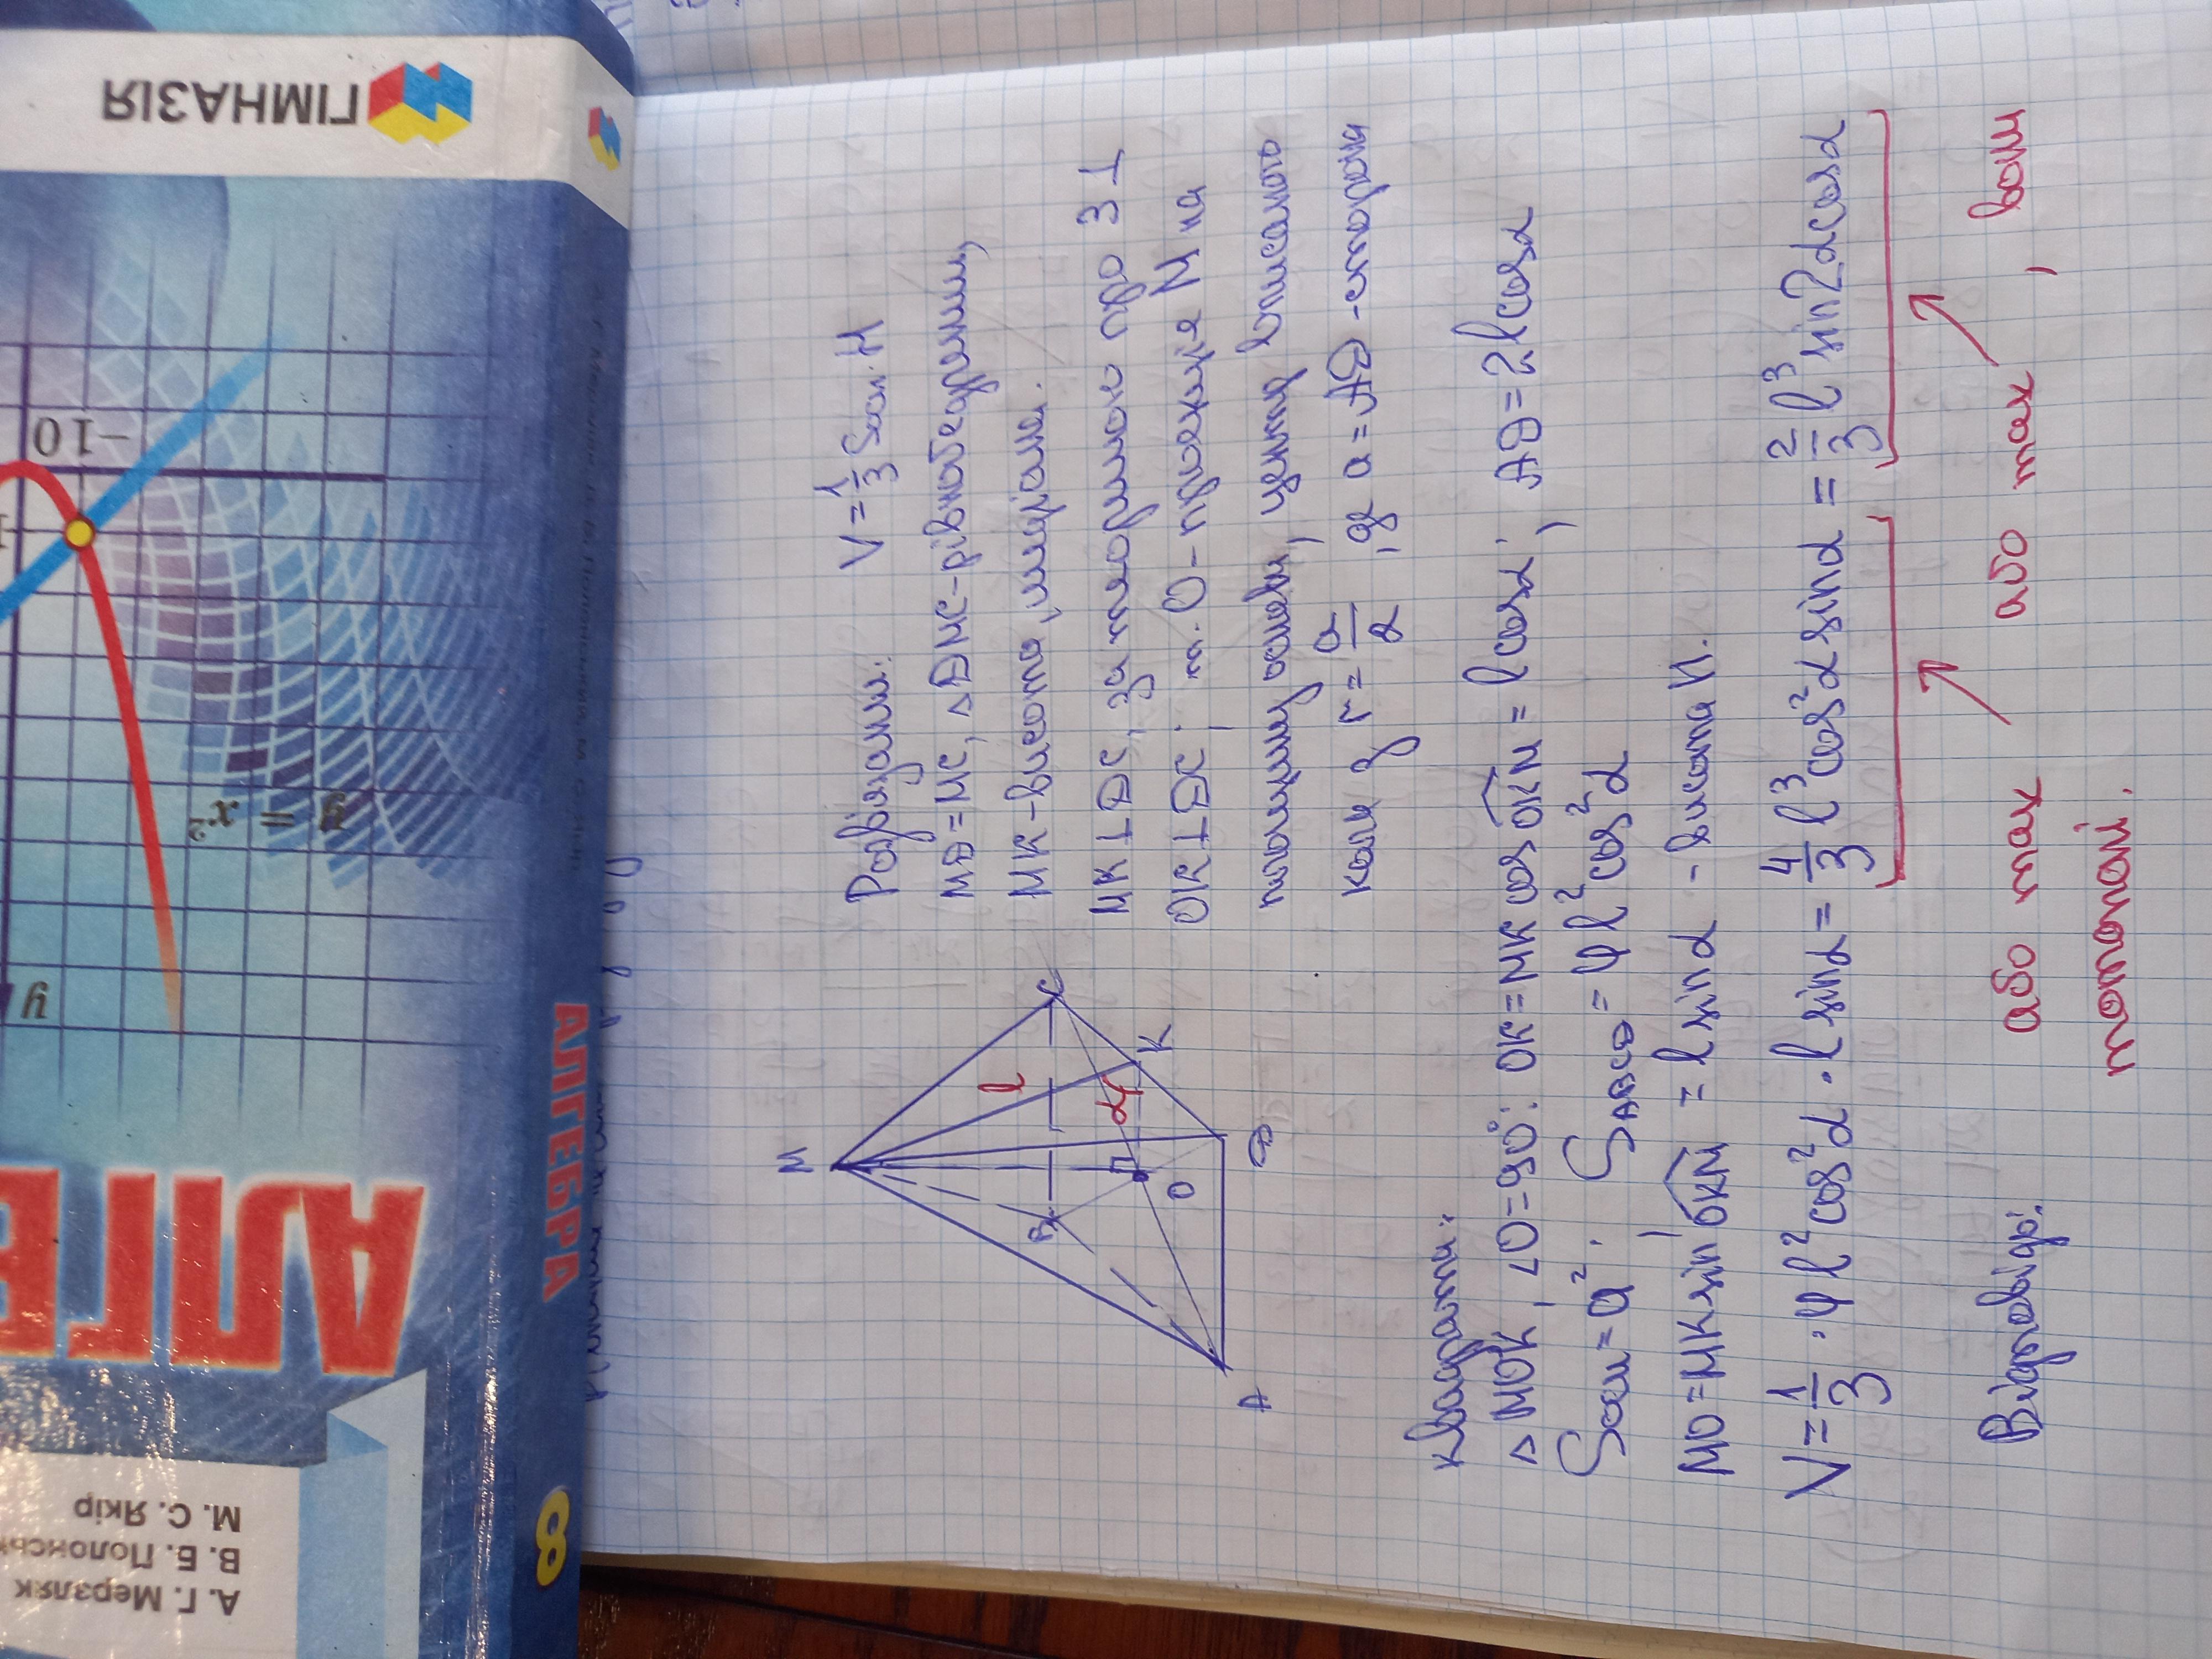 ГІМНАЗІЯ
-10
y = x²
y
АЛГЕБРА
АЛГЕ
8
А. Г. Мерзляк
В. Б. Полонськ
М. С. Якір
Розв'язати: V = 1/3 Sосн. H
MD = MC, △DMC - рівнобедрений,
MK - висота, медіана.
MK ⊥ DC, за теоремою про 3 ⊥
OK ⊥ DC; т. O - проекція M на
площину основи, центр вписаного
кола з r = a/2, де a = AD - сторона
квадрата.
△ MOK, ∠O = 90°: OK = MK cos OKM = l cos α; AD = 2l cos α
Sосн = a²; SABCD = 4l² cos² α
MO = MK sin OKM = l sin α - висота H.
V = 1/3 · 4l² cos² α · l sin α = 4/3 l³ cos² α sin α = 2/3 l³ sin 2α cos α
Відповідь: або так або так, вони
тотожні.
M
l
C
K
α
B
O
D
A